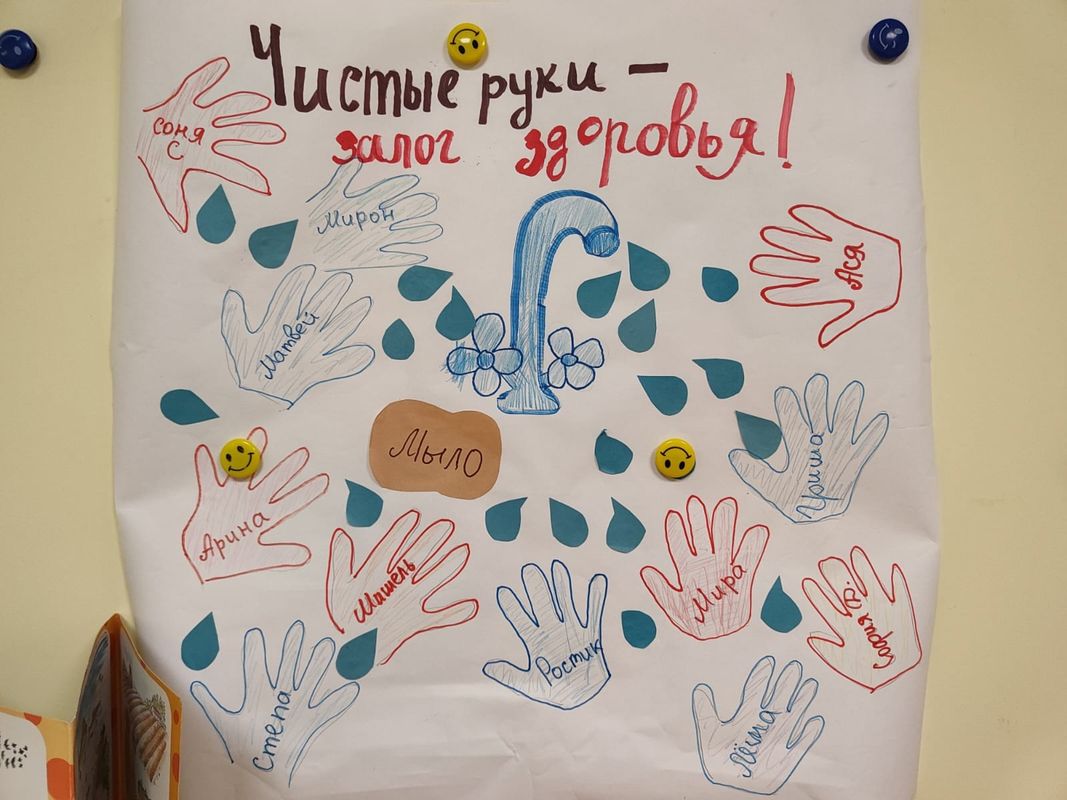 Чистые руки –
залог здоровья!
Соня
С
Мирон
Ася
Матвей
Гриша
Мыло
Арина
Мишель
Мира
София В.
Ростик
Стёпа
Лёша